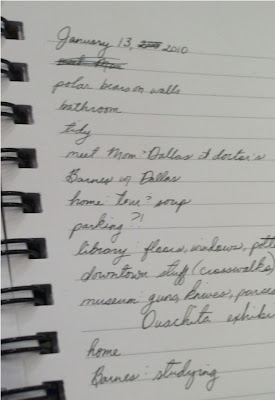 January 13, 2010
polar bears on walls
bathroom
tidy
meet Mom + Dallas at doctor's
Barnes w/ Dallas
home: soup
parking?!
library: floors, windows,
downtown stuff (crosswalks)
museum: guns, knives,
Ouachita
home
Barnes: studying